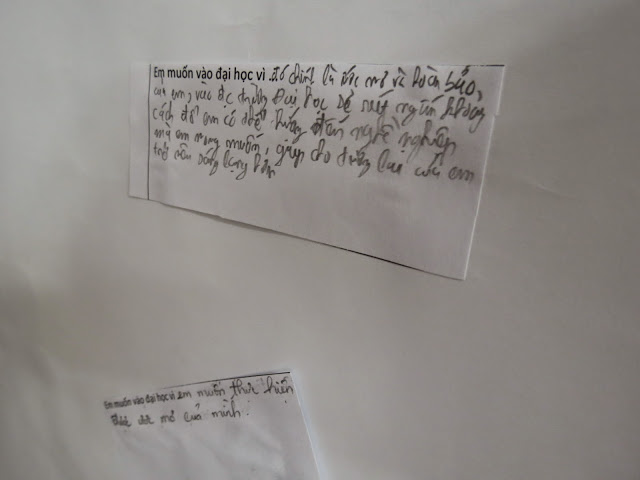 Em muốn vào đại học vì đó chính là ước mơ và hoài bảo,
của em, vào đc trường Đại học để rút ngắn khoảng
cách để em có thể hướng đến nghề nghiệp
mà em mong muốn, giúp cho tương lai của em
trở nên sáng lạng hơn
Em muốn vào đại học vì em muốn thực hiện
được ước mơ của mình.